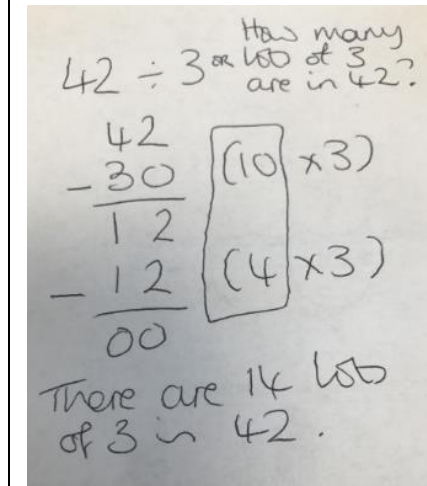 42 ÷ 3 or How many lots of 3 are in 42?
42
- 30 (10 × 3)
12
- 12 (4 × 3)
00
There are 14 lots
of 3 in 42.